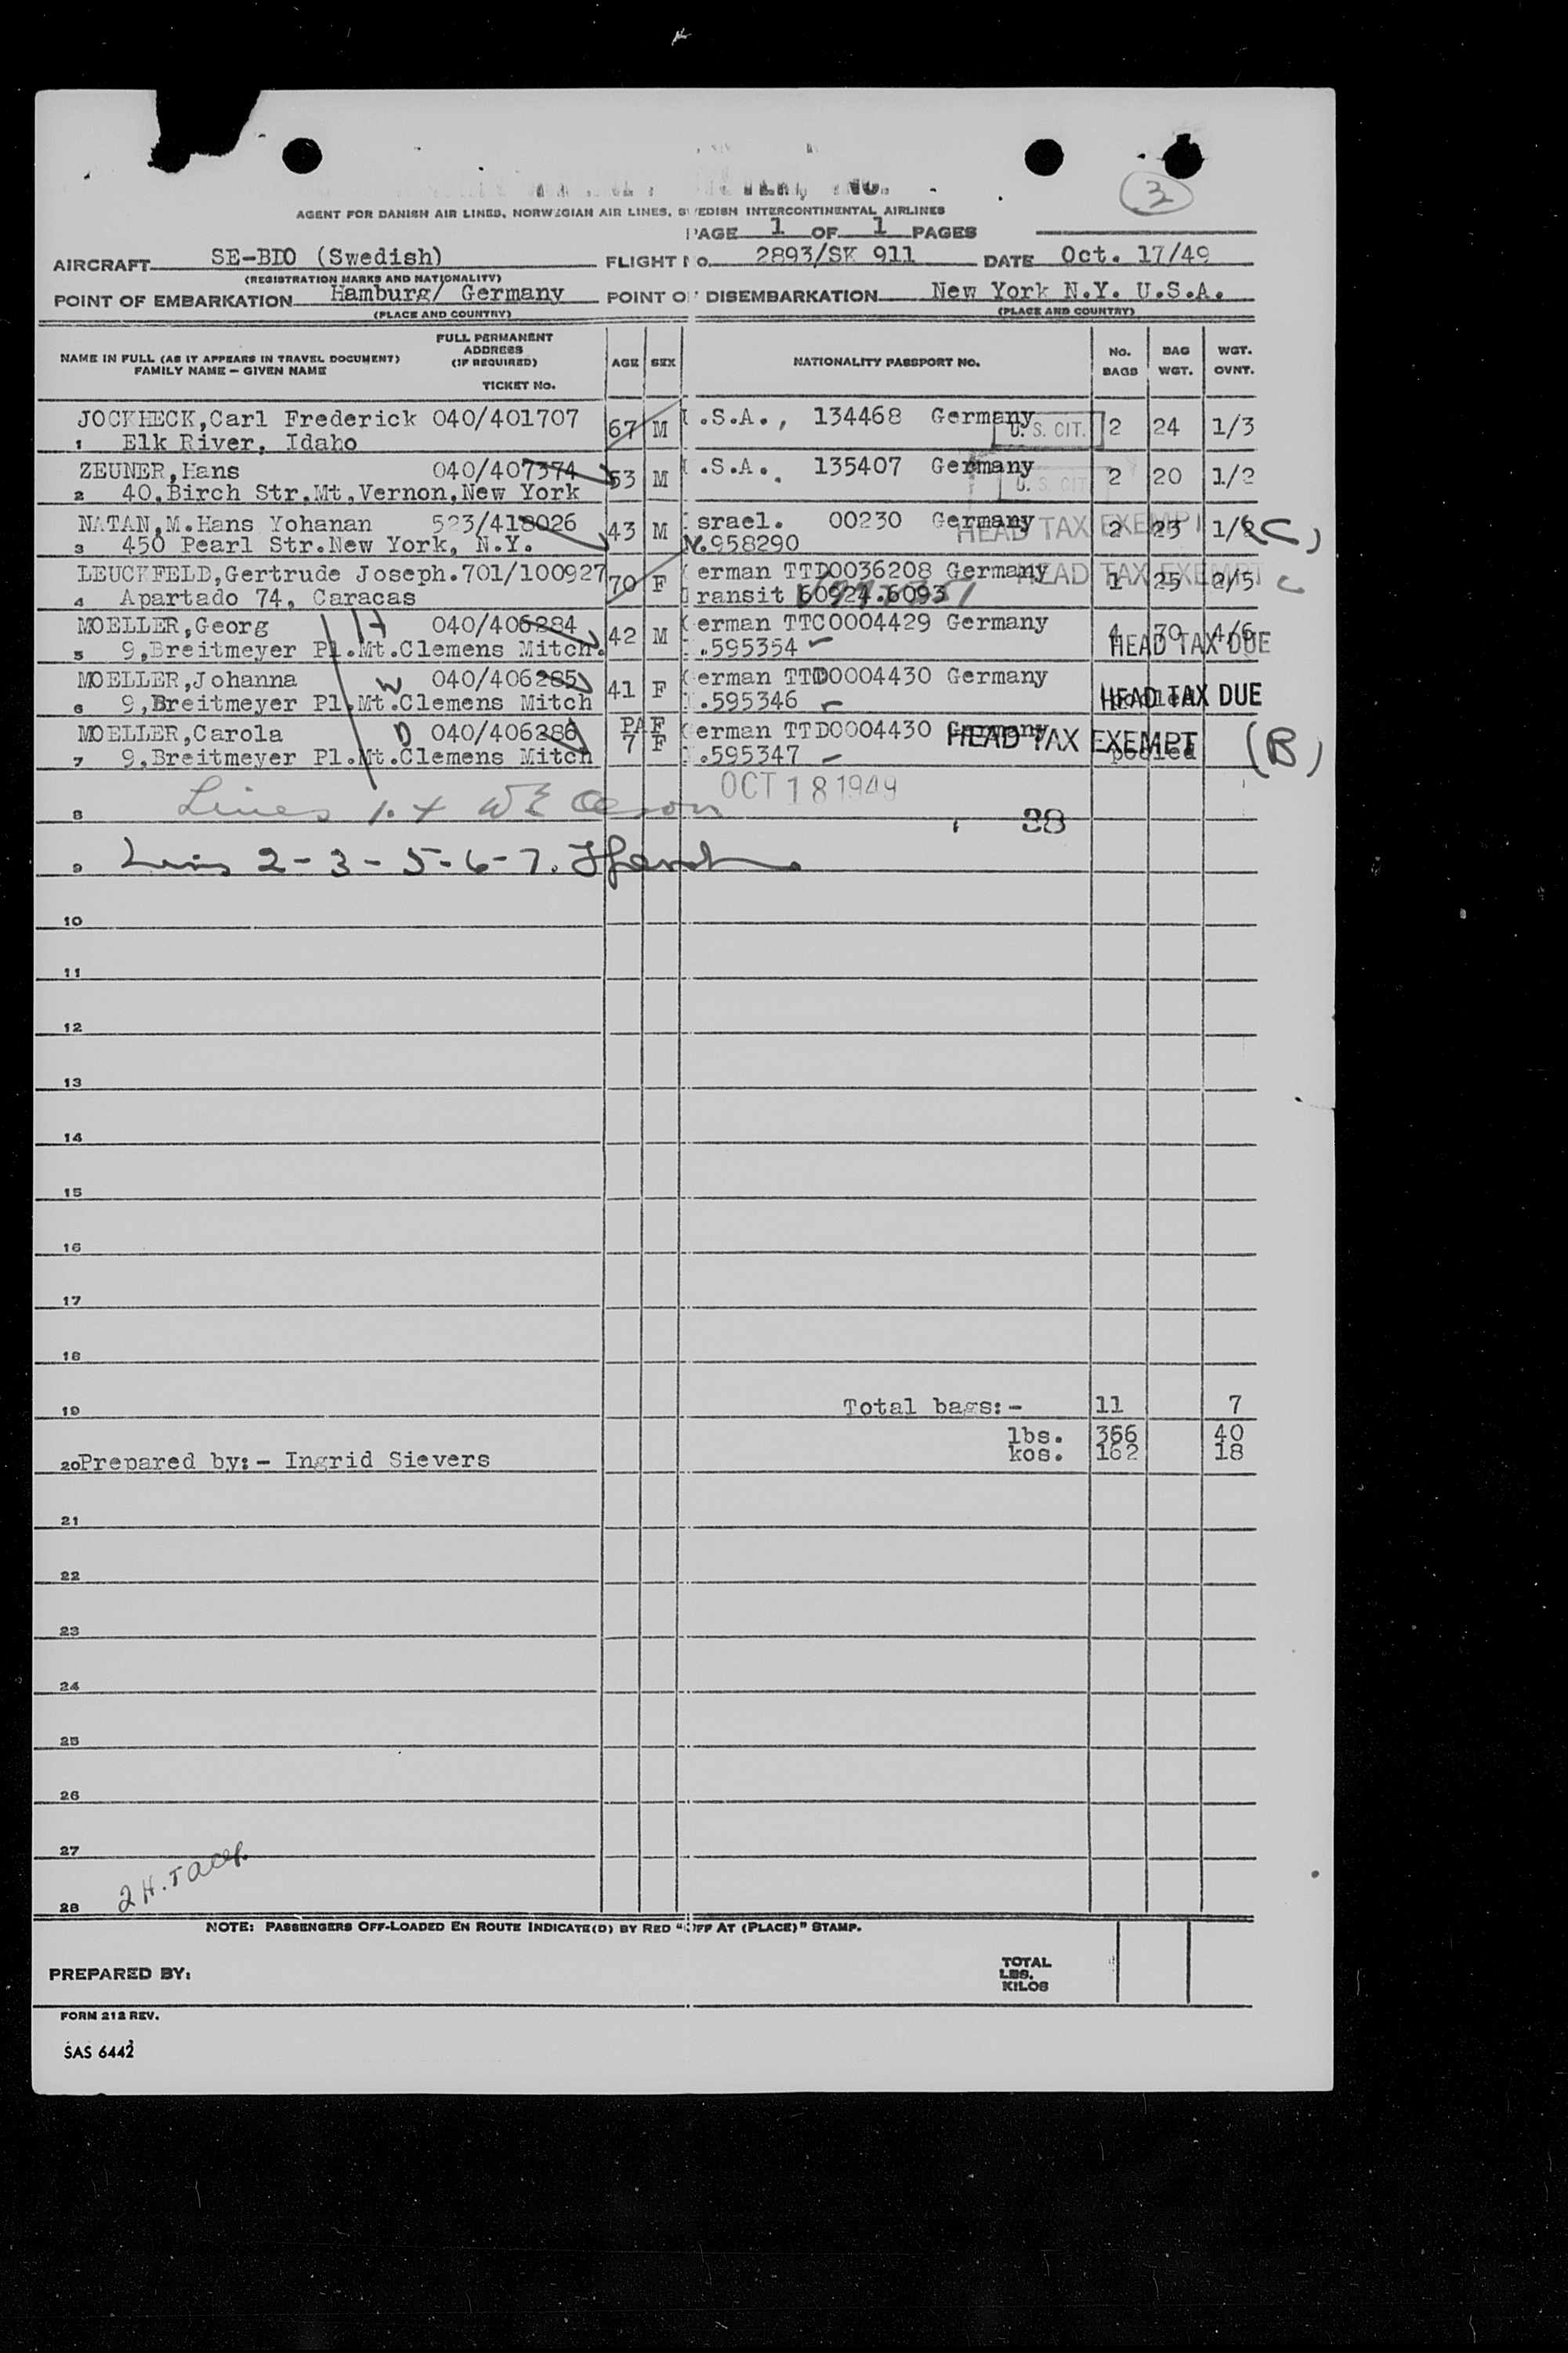 3
AGENT FOR DANISH AIR LINES, NORWEGIAN AIR LINES, SWEDISH INTERCONTINENTAL AIRLINES
PAGE 1 OF 1 PAGES
AIRCRAFT SE-BDO (Swedish) FLIGHT No. 2893/SK 911 DATE Oct. 17/49
(REGISTRATION MARKS AND NATIONALITY)
POINT OF EMBARKATION Hamburg/ Germany POINT OF DISEMBARKATION New York N.Y. U.S.A.
(PLACE AND COUNTRY) (PLACE AND COUNTRY)
NAME IN FULL (AS IT APPEARS IN TRAVEL DOCUMENT) FAMILY NAME – GIVEN NAME FULL PERMANENT ADDRESS (IF REQUIRED) TICKET No. AGE SEX NATIONALITY PASSPORT NO. No. BAGS BAG WGT. WGT. OVNT.
JOCKHECK,Carl Frederick 040/401707 67 M .S.A., 134468 Germany U. S. CIT. 2 24 1/3
1 Elk River, Idaho
ZEUNER,Hans 040/407374 53 M .S.A. 135407 Germany U. S. CIT 2 20 1/2
2 40.Birch Str.Mt.Vernon.New York
NATAN,M.Hans Yohanan 523/418026 43 M srael. 00230 Germany HEAD TAX EXEMPT 2 23 1/2 (C)
3 450 Pearl Str.New York, N.Y. V.958290
LEUCKFELD,Gertrude Joseph.701/100927 70 F erman TTD0036208 Germany HEAD TAX EXEMPT 1 25 2/5 C
4 Apartado 74, Caracas ransit 60924.6093
MOELLER,Georg H 040/406284 42 M erman TTC0004429 Germany 4 70 4/6
5 9,Breitmeyer Pl.Mt.Clemens Mitch. .595354 HEAD TAX DUE
MOELLER,Johanna W 040/406285 41 F erman TTD0004430 Germany
6 9,Breitmeyer Pl.Mt.Clemens Mitch .595346 HEAD TAX DUE
MOELLER,Carola D 040/406286 7 F erman TTD0004430 Germany HEAD TAX EXEMPT (B)
7 9.Breitmeyer Pl.Mt.Clemens Mitch .595347 pooled
OCT 18 1949
8 Lines 1.4
38
9 Lines 2-3-5-6-7.
10
11
12
13
14
15
16
17
18
19 Total bags:- 11 7
lbs. 356 40
20 Prepared by:- Ingrid Sievers kos. 162 18
21
22
23
24
25
26
27
2 H.T
28
NOTE: PASSENGERS OFF-LOADED EN ROUTE INDICATE(D) BY RED "OFF AT (PLACE)" STAMP.
PREPARED BY: TOTAL LBS. KILOS
FORM 212 REV.
SAS 6442